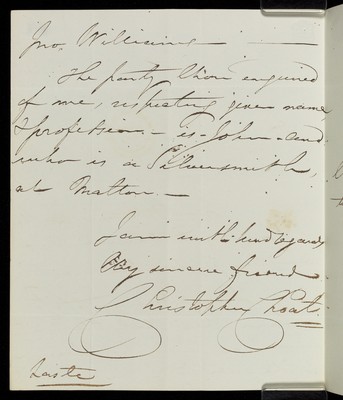 Jno, Williams
The party thou enquired
of me, respecting given name
& profession - is - John - and
who is a Silversmith,
at Malton. -
I am with kind regards
thy sincere friend
Christopher Choat.
haste